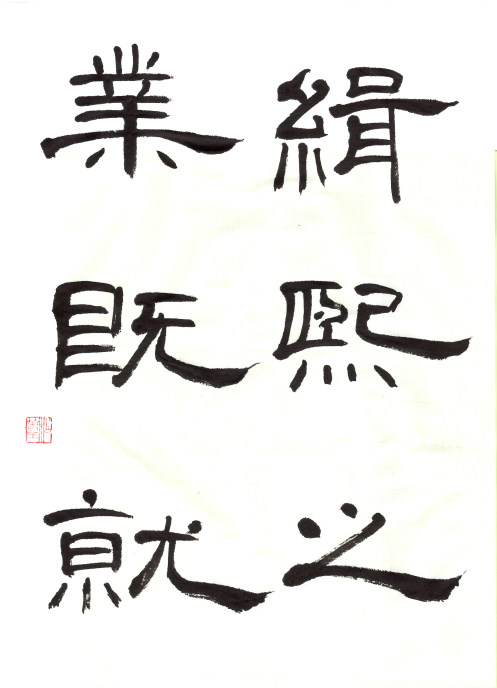 緝熙之
業既就